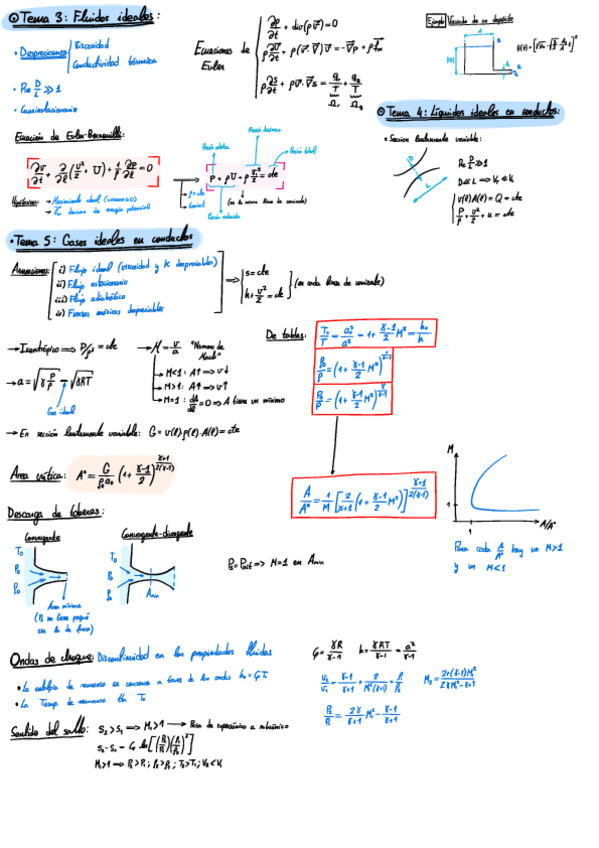 ⊙ Tema 3: Fluidos ideales:
• Despreciamos Viscosidad
Conductividad térmica
• Re D/L ≫ 1
• Cuasiestacionario
Ecuaciones de Euler
∂ρ/∂t + div(ρv̄) = 0
ρ ∂v̄/∂t + ρ(v̄·∇)v̄ = -∇p + ρf̄m
ρ ∂s/∂t + ρv̄·∇s = qr/T + qq/T
Ejemplo: Vaciado de un depósito
Ecuación de Euler-Bernouilli:
∂v/∂t + ∂/∂ℓ(v²/2 + U) + 1/ρ ∂p/∂ℓ = 0
Presión estática
Presión dinámica
Presión total
P + ρU + ρ v²/2 = cte
ρ = cte
(en la misma línea de corriente)
Presión reducida
Hipótesis:
⊙ Tema 4: Líquidos ideales en conductos:
• Sección lentamente variable:
Re D/L ≫ 1
v(ℓ)A(ℓ) = Q = cte
P/ρ + v²/2 + U = cte
• Tema 5: Gases ideales en conductos
Asunciones:
i) Flujo ideal (viscosidad y K despreciables)
ii) Flujo estacionario
iii) Flujo adiabático
iv) Fuerzas másicas despreciables
⟹ s = cte
h + v²/2 = cte
(en cada línea de corriente)
→ Isentrópico ⟹ P/ρ^γ = cte
→ a = √(γ P/ρ) = √(γRT)
Gas ideal
→ M = v/a "Número de Mach"
→ M<1: A↑ ⟹ v↓
→ M>1: A↑ ⟹ v↑
→ M=1: dA/dℓ = 0 ⟹ A tiene un mínimo
De tablas:
T₀/T = a₀²/a² = 1 + (γ-1)/2 M² = h₀/h
ρ₀/ρ = (1 + (γ-1)/2 M²)^(1/(γ-1))
P₀/P = (1 + (γ-1)/2 M²)^(γ/(γ-1))
→ En sección lentamente variable: G = v(ℓ)·ρ(ℓ)·A(ℓ) = cte
Área crítica: A* = G/(ρ₀a₀) (1 + (γ-1)/2)^((γ+1)/(2(γ-1)))
A/A* = 1/M [2/(γ+1) (1 + (γ-1)/2 M²)]^((γ+1)/(2(γ-1)))
M
1
1
A/A*
Para cada A/A* hay un M>1
y un M<1
Descarga de toberas:
Convergente
T₀
P₀
ρ₀
Área mínima
Convergente-divergente
T₀
P₀
ρ₀
Amin
⟹ M=1 en Amin
Ondas de choque: Discontinuidad en las propiedades fluidas
• La entalpía de remanso se conserva a través de las ondas h₀ = CpT₀
• La Temp. de remanso tb T₀
Cp = γR/(γ-1)
h = γRT/(γ-1) = a²/(γ-1)
P₂/P₁ = 2γ/(γ+1) M₁² - (γ-1)/(γ+1)
Sentido del salto: S₂ > S₁ ⟹ M₁ > 1 → Pasa de supersónico a subsónico
M₁>1 ⟹ P₂>P₁; ρ₂>ρ₁; T₂>T₁; v₂<v₁